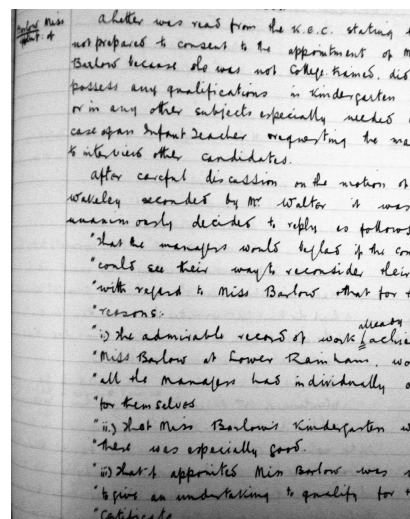 Barlow Miss
appoint: of
A letter was read from the K.E.C. stating
not prepared to consent to the appointment of M
Barlow because she was not College trained, did
possess any qualifications in Kindergarten
or in any other subjects especially needed
case of an Infant Teacher & requesting the ma
to interview other candidates.
After careful discussion on the motion of
Wakeley seconded by Mr. Walter it was
unanimously decided to reply as follows
"that the managers would be glad if the com
"could see their way to reconsider their
"with regard to Miss Barlow & that for
"reasons:
already
"i) The admirable record of work achie
"Miss Barlow at Lower Rainham, wo
"all the Managers had individually
"for themselves
"ii) that Miss Barlow's Kindergarten w
"there was especially good.
"iii) that if appointed Miss Barlow was
"to give an undertaking to qualify for
"Certificate